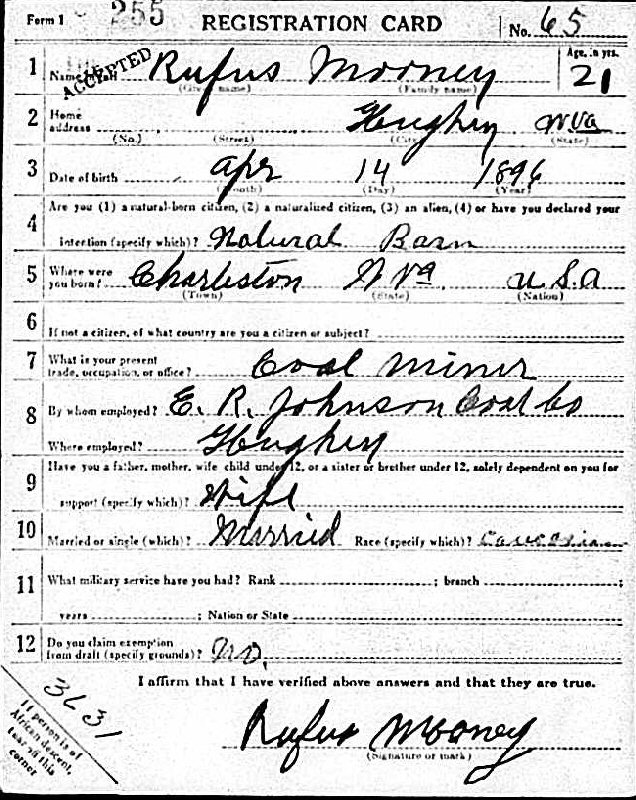 Form 1 255 REGISTRATION CARD No. 65
1 Name in full Rufus Mooney Age, in yrs. 21
ACCEPTED (Given name) (Family name)
2 Home address Hughey W Va
(No.) (Street) (City) (State)
3 Date of birth Apr 14 1896
(Month) (Day) (Year)
4 Are you (1) a natural-born citizen, (2) a naturalized citizen, (3) an alien, (4) or have you declared your
intention (specify which)? Natural Born
5 Where were you born? Charleston W Va U.S.A
(Town) (State) (Nation)
6 If not a citizen, of what country are you a citizen or subject?
7 What is your present trade, occupation, or office? Coal Miner
8 By whom employed? E. R. Johnson Coal Co
Where employed? Hughey
9 Have you a father, mother, wife child under 12, or a sister or brother under 12, solely dependent on you for
support (specify which)? Wife
10 Married or single (which)? Married Race (specify which)? Caucasian
11 What military service have you had? Rank ; branch ;
years ; Nation or State
12 Do you claim exemption from draft (specify grounds)? No.
I affirm that I have verified above answers and that they are true.
3631
If person is of
African descent,
tear off this
corner
Rufus Mooney
(Signature or mark)